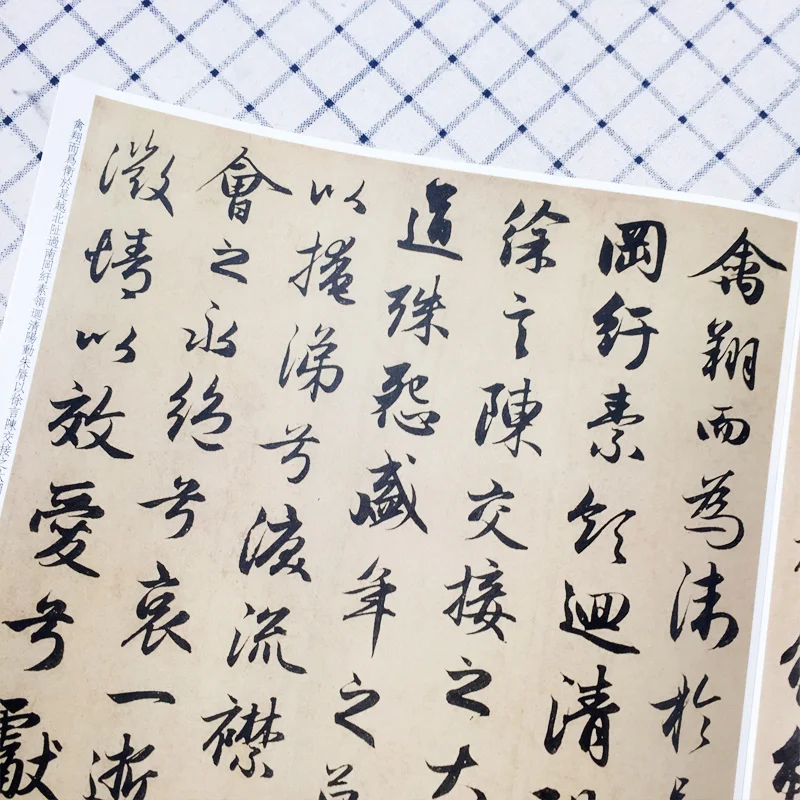 禽翔而為沬於
岡紆素領迴清
徐言陳交接之大
道殊怨盛年之
以掩涕兮淚流襟
會之永絕兮哀一逝
微情以效愛兮獻
禽翔而爲沬於是越北沚過南岡紆素領迴清陽動朱脣以徐言陳交接之大